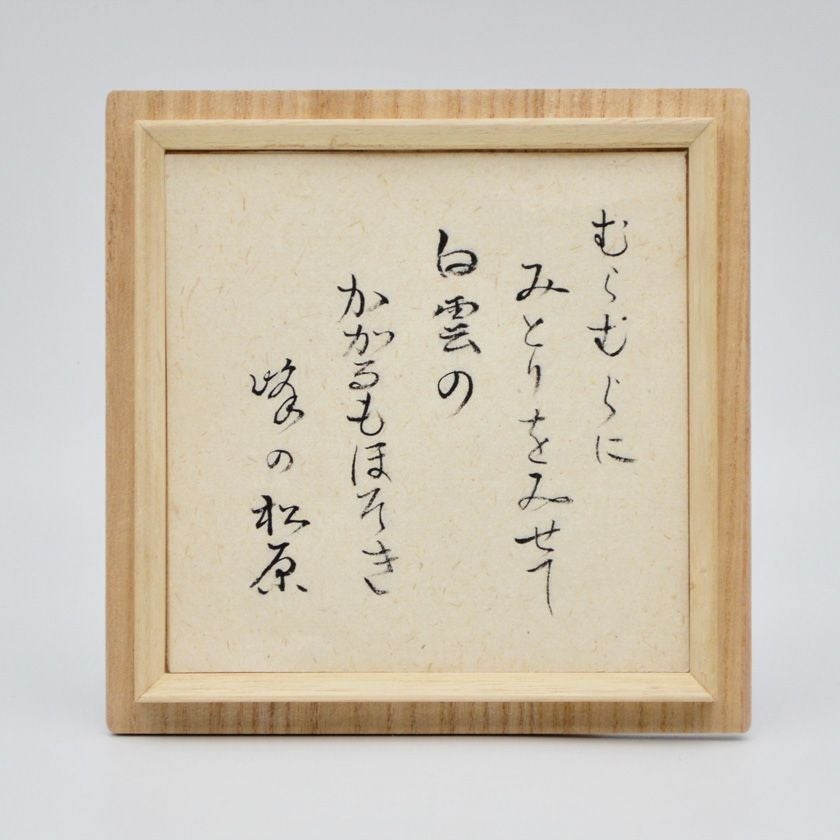 むらむらに
みとりをみせて
白雲の
かかるもほそき
峰の松原